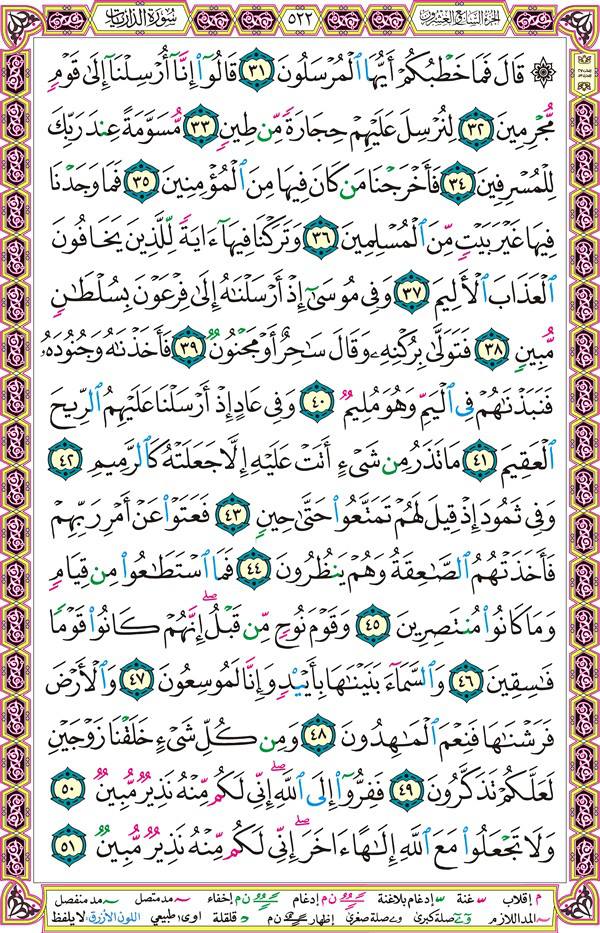 سورة الذاريات ٥٢٢ الجزء السابع والعشرون
۞ قَالَ فَمَا خَطْبُكُمْ أَيُّهَا ٱلْمُرْسَلُونَ ٣١ قَالُوٓا۟ إِنَّآ أُرْسِلْنَآ إِلَىٰ قَوْمٍ
مُّجْرِمِينَ ٣٢ لِنُرْسِلَ عَلَيْهِمْ حِجَارَةً مِّن طِينٍ ٣٣ مُّسَوَّمَةً عِندَ رَبِّكَ
لِلْمُسْرِفِينَ ٣٤ فَأَخْرَجْنَا مَن كَانَ فِيهَا مِنَ ٱلْمُؤْمِنِينَ ٣٥ فَمَا وَجَدْنَا
فِيهَا غَيْرَ بَيْتٍ مِّنَ ٱلْمُسْلِمِينَ ٣٦ وَتَرَكْنَا فِيهَآ ءَايَةً لِّلَّذِينَ يَخَافُونَ
ٱلْعَذَابَ ٱلْأَلِيمَ ٣٧ وَفِى مُوسَىٰٓ إِذْ أَرْسَلْنَٰهُ إِلَىٰ فِرْعَوْنَ بِسُلْطَٰنٍ
مُّبِينٍ ٣٨ فَتَوَلَّىٰ بِرُكْنِهِۦ وَقَالَ سَٰحِرٌ أَوْ مَجْنُونٌ ٣٩ فَأَخَذْنَٰهُ وَجُنُودَهُۥ
فَنَبَذْنَٰهُمْ فِى ٱلْيَمِّ وَهُوَ مُلِيمٌ ٤٠ وَفِى عَادٍ إِذْ أَرْسَلْنَا عَلَيْهِمُ ٱلرِّيحَ
ٱلْعَقِيمَ ٤١ مَا تَذَرُ مِن شَىْءٍ أَتَتْ عَلَيْهِ إِلَّا جَعَلَتْهُ كَٱلرَّمِيمِ ٤٢
وَفِى ثَمُودَ إِذْ قِيلَ لَهُمْ تَمَتَّعُوا۟ حَتَّىٰ حِينٍ ٤٣ فَعَتَوْا۟ عَنْ أَمْرِ رَبِّهِمْ
فَأَخَذَتْهُمُ ٱلصَّٰعِقَةُ وَهُمْ يَنظُرُونَ ٤٤ فَمَا ٱسْتَطَٰعُوا۟ مِن قِيَامٍ
وَمَا كَانُوا۟ مُنتَصِرِينَ ٤٥ وَقَوْمَ نُوحٍ مِّن قَبْلُ ۖ إِنَّهُمْ كَانُوا۟ قَوْمًا
فَٰسِقِينَ ٤٦ وَٱلسَّمَآءَ بَنَيْنَٰهَا بِأَيْي۟دٍ وَإِنَّا لَمُوسِعُونَ ٤٧ وَٱلْأَرْضَ
فَرَشْنَٰهَا فَنِعْمَ ٱلْمَٰهِدُونَ ٤٨ وَمِن كُلِّ شَىْءٍ خَلَقْنَا زَوْجَيْنِ
لَعَلَّكُمْ تَذَكَّرُونَ ٤٩ فَفِرُّوٓا۟ إِلَى ٱللَّهِ ۖ إِنِّى لَكُم مِّنْهُ نَذِيرٌ مُّبِينٌ ٥٠
وَلَا تَجْعَلُوا۟ مَعَ ٱللَّهِ إِلَٰهًا ءَاخَرَ ۖ إِنِّى لَكُم مِّنْهُ نَذِيرٌ مُّبِينٌ ٥١
م إقلاب غنة إدغام بلاغنة ن م إدغام إخفاء مد متصل مد منفصل
المد اللازم صلة كبرى صلة صغرى إظهار ن م قلقلة اوى: طبيعي اللون الأزرق: لا يلفظ